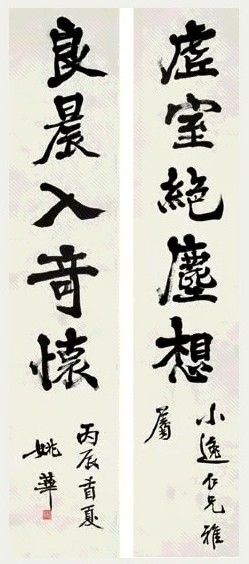 虛室絶塵想
小逸兄雅
屬
良晨入奇懷
丙辰首夏
姚華